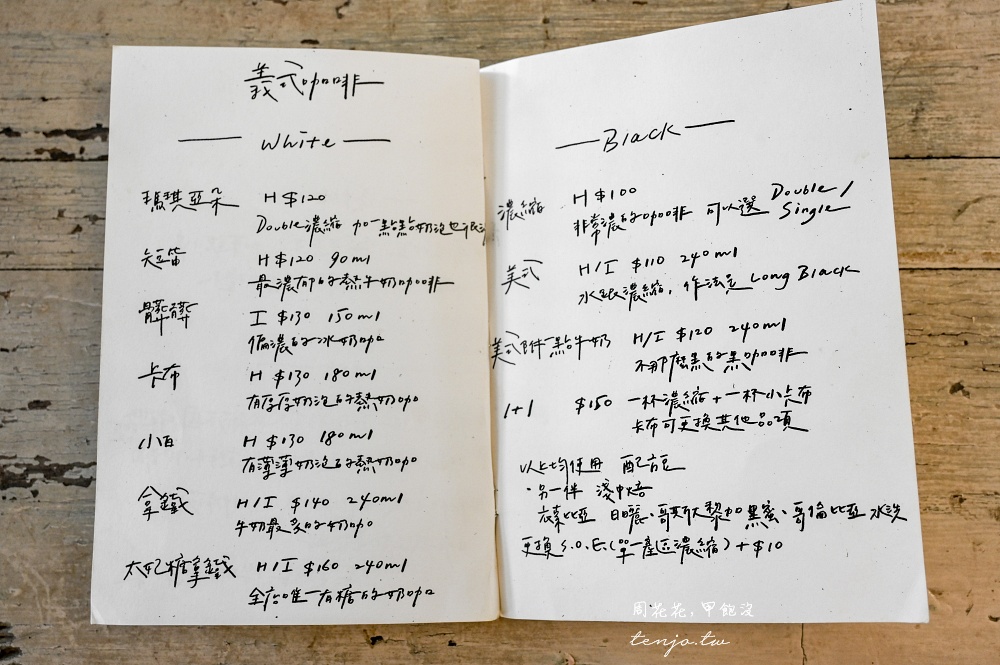 義式咖啡
White
瑪琪亞朵 H $120
Double濃縮 加一點點奶泡也很
短笛 H $120 90ml
最濃郁的熱牛奶咖啡
髒髒 I $130 150ml
偏濃的冰奶咖
卡布 H $130 180ml
有厚厚奶泡的熱奶咖
小白 H $130 180ml
有薄薄奶泡的熱奶咖
拿鐵 H/I $140 240ml
牛奶最多的奶咖
太妃糖拿鐵 H/I $160 240ml
全店唯一有糖的奶咖
Black
濃縮 H $100
非常濃的咖啡 可以選 Double/
Single
美式 H/I $110 240ml
水跟濃縮,作法是 Long Black
美式附一點牛奶 H/I $120 240ml
不那麼黑的黑咖啡
1+1 $150 一杯濃縮+一杯小卡布
卡布可更換其他品項
以上均使用 配方豆
·另一伴 淺中焙
衣索比亞 日曬、哥斯大黎加 黑蜜、哥倫比亞 水洗
更換 S.O.E.(單一產區濃縮)+$10
周花花,甲飽沒
tenjo.tw